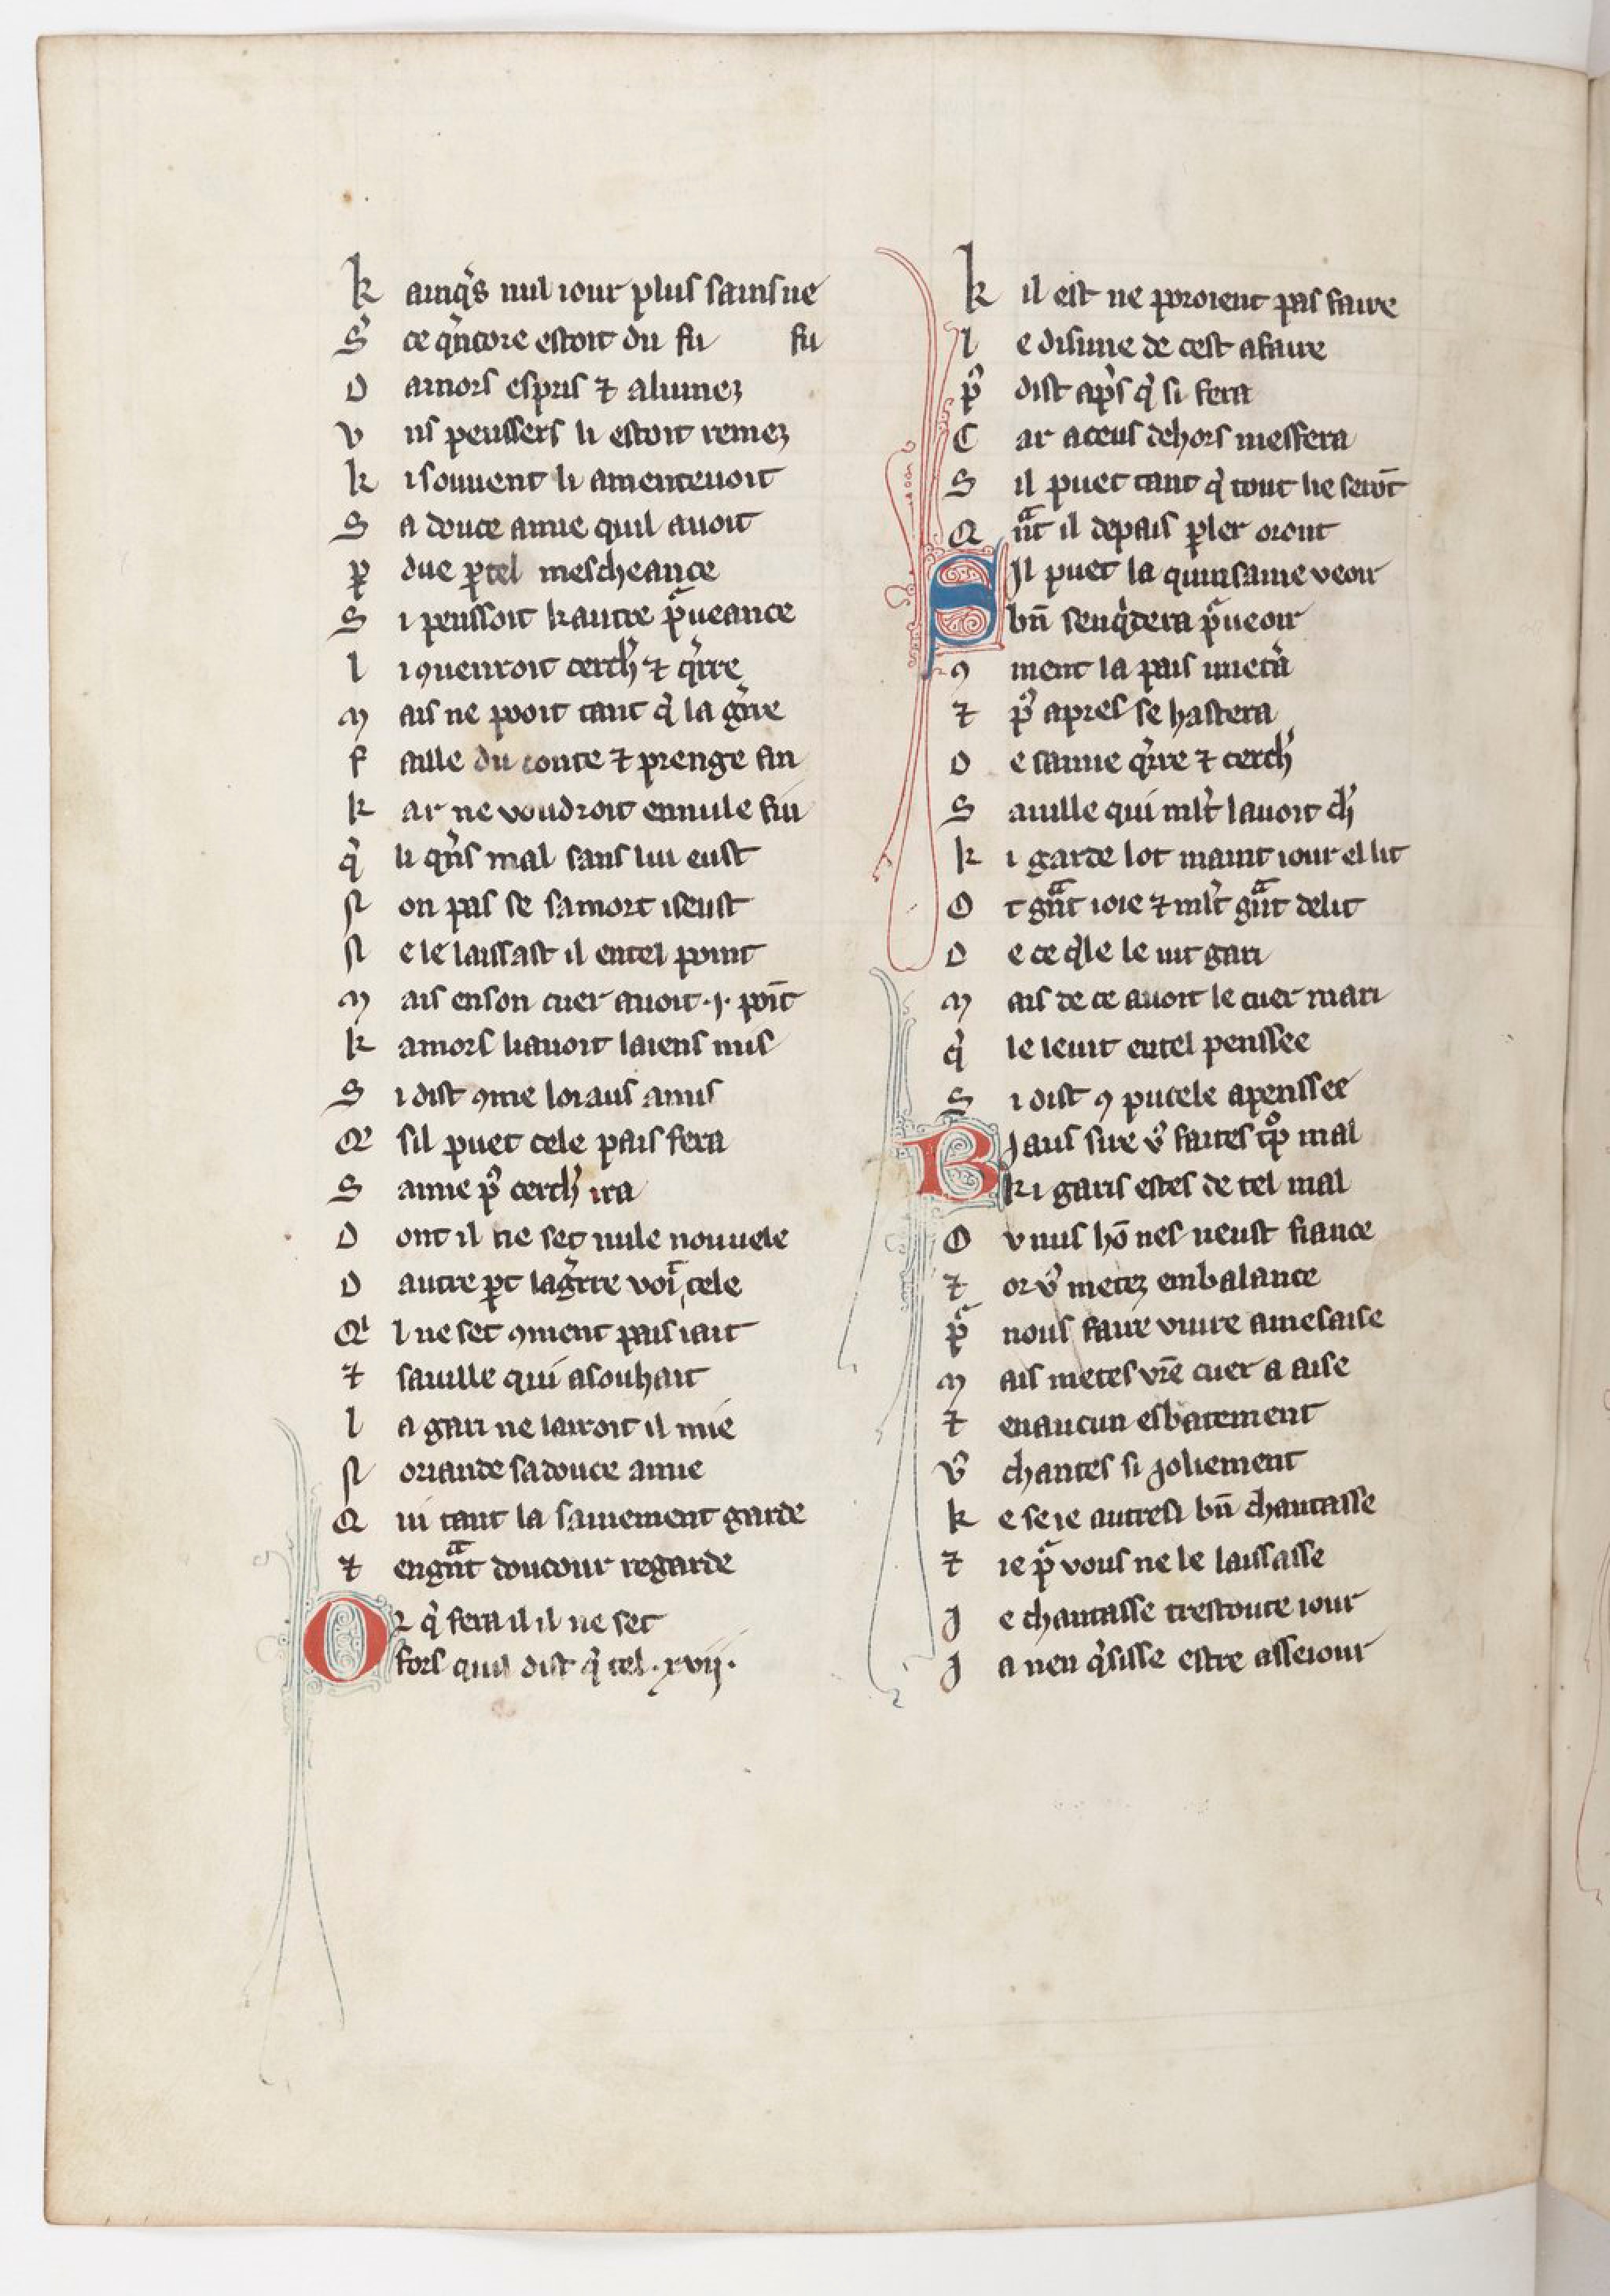 k ainq̾s nul iour plus sains ne
S̾ ce qͥncore estoit du fu fu
D amors espris ⁊ alumez
v ns penssers li estoit remez
k i souuent li amenteuoit
S a douce amie quil auoit
ꝑ due ꝑ tel mescheance
S i penssoit kautre pᷓueance
l i ꝯuenroit cerch̾ ⁊ q̾rre
M ais ne pooit tant qͥ la g̾rre
f aille du conte ⁊ prenge fin
k ar ne voudroit en nule fin
qͥ li qͥns mal sans lui eust
N on pas se sa mort i seust
N e le laissast il en tel point
M ais en son cuer auoit .j. poīt
k amors li auoit laiens mis
S i dist ꝯme loiaus amis
Q̾ sil puet cele pais fera
S amie pͦ cerch̾ ira
D ont il ne set nule nouuele
D autre ꝑt la g̾rre voiᷓ cele
Qͥ l ne set ꝯment pais i ait
⁊ sa uille qui a souhait
l a gari ne lairoit il mie
N oriande sa douce amie
Q ui tant la sainement garde
⁊ en gᷓnt doucour regarde
Or qͥ fera il il ne set
fors quil dist qͥ tel .xvij.
k il est ne poroient pas faire
l e disime de cest afaire
pͦ dist ap̾s qͥ si fera
C ar a ceus dehors mesfera
S il puet tant qͥ tout lie serōt
Q ᷓnt il de pais ꝑler oront
Sil puet la quinsaine veoir
bn̄ sen qͥdera pᷓueoir
ꝯ ment la pais i meta̾
⁊ pͦ apres se hastera
D e samie q̾rre ⁊ cerch̾
S a uille qui ml̾t lauoit ch̾
k i garde lot maint iour el lit
O t gᷓnt ioie ⁊ ml̾t gᷓnt delit
D e ce qͥle le uit gari
M ais de ce auoit le cuer mari
qͥ le le uit en tel penssee
S i dist ꝯ pucele apenssee
Biaus sire vͦ faites tͦp mal
ki garis estes de tel mal
O v nus hō nes neust fiance
⁊ or vͦ metez en balance
pᷓ nous faire viure a mesaise
M ais metes vr̄e cuer a aise
⁊ en aucun esbatement
vͦ chantes si joliement
k e se ie autresi bn̄ chantasse
⁊ ie pᷓ vous ne le laissasse
J e chantasse trestoute iour
J a nen qͥsisse estre asseiour